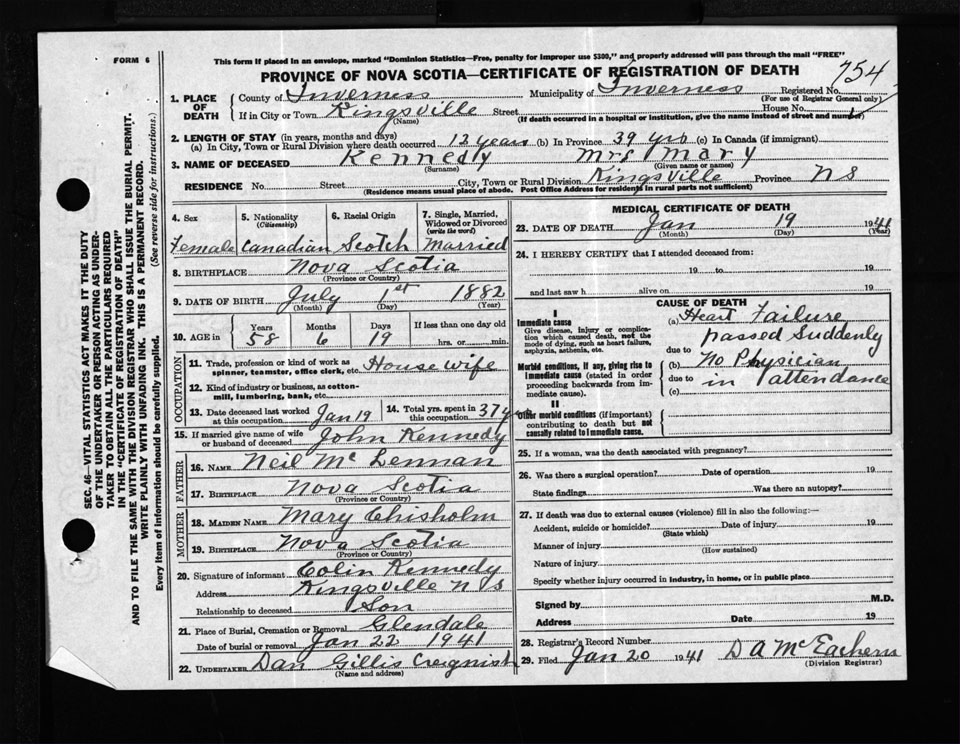 FORM 6
This form if placed in an envelope, marked "Dominion Statistics—Free, penalty for improper use $300," and properly addressed will pass through the mail "FREE"
PROVINCE OF NOVA SCOTIA—CERTIFICATE OF REGISTRATION OF DEATH
754
1. PLACE OF DEATH County of Inverness Municipality of Inverness Registered No.
(For use of Registrar General only)
If in City or Town Kingsville Street House No.
(Name) (If death occurred in a hospital or institution, give the name instead of street and number)
2. LENGTH OF STAY (in years, months and days)
(a) In City, Town or Rural Division where death occurred 12 years (b) In Province 39 yrs (c) In Canada (if immigrant)
3. NAME OF DECEASED Kennedy Mrs Mary
(Surname) (Given name or names)
RESIDENCE No. Street City, Town or Rural Division Kingsville Province N S
(Residence means usual place of abode. Post Office Address for residents in rural parts not sufficient)
4. Sex 5. Nationality (Citizenship) 6. Racial Origin 7. Single, Married, Widowed or Divorced (write the word)
Female Canadian Scotch Married
8. BIRTHPLACE Nova Scotia
(Province or Country)
9. DATE OF BIRTH July 1st 1882
(Month) (Day) (Year)
10. AGE in Years Months Days If less than one day old
58 6 19 hrs. or min.
OCCUPATION
11. Trade, profession or kind of work as spinner, teamster, office clerk, etc. House wife
12. Kind of industry or business, as cotton-mill, lumbering, bank, etc.
13. Date deceased last worked at this occupation Jan 19 14. Total yrs. spent in this occupation 37 y
15. If married give name of wife or husband of deceased John Kennedy
FATHER
16. NAME Neil Mc Lennan
17. BIRTHPLACE Nova Scotia
(Province or Country)
MOTHER
18. MAIDEN NAME Mary Chisholm
19. BIRTHPLACE Nova Scotia
(Province or Country)
20. Signature of informant Colin Kennedy
Address Kingsville N S
Relationship to deceased Son
21. Place of Burial, Cremation or Removal Glendale
Date of burial or removal Jan 22 1941
22. UNDERTAKER Dan Gillis Creignish
(Name and address)
MEDICAL CERTIFICATE OF DEATH
23. DATE OF DEATH Jan 19 1941
(Month) (Day) (Year)
24. I HEREBY CERTIFY that I attended deceased from:
19 to 19
and last saw h alive on 19
CAUSE OF DEATH
I
Immediate cause
Give disease, injury or complication which caused death, not the mode of dying, such as heart failure, asphyxia, asthenia, etc.
Morbid conditions, if any, giving rise to immediate cause (stated in order proceeding backwards from immediate cause).
II
Other morbid conditions (if important) contributing to death but not causally related to immediate cause.
(a) Heart Failure
passed Suddenly
due to
(b) No Physician
due to in attendance
(c)
25. If a woman, was the death associated with pregnancy?
26. Was there a surgical operation? Date of operation 19
State findings Was there an autopsy?
27. If death was due to external causes (violence) fill in also the following:—
Accident, suicide or homicide? Date of injury 19
(State which)
Manner of injury
(How sustained)
Nature of injury
Specify whether injury occurred in industry, in home, or in public place
Signed by M.D.
Address Date 19
28. Registrar's Record Number
29. Filed Jan 20 1941 D A McEachern
(Division Registrar)
SEC. 46—VITAL STATISTICS ACT MAKES IT THE DUTY
OF THE UNDERTAKER OR PERSON ACTING AS UNDER-
TAKER TO OBTAIN ALL THE PARTICULARS REQUIRED
IN THE "CERTIFICATE OF REGISTRATION OF DEATH"
AND TO FILE THE SAME WITH THE DIVISION REGISTRAR WHO SHALL ISSUE THE BURIAL PERMIT.
WRITE PLAINLY WITH UNFADING INK. THIS IS A PERMANENT RECORD.
Every item of information should be carefully supplied. (See reverse side for instructions.)